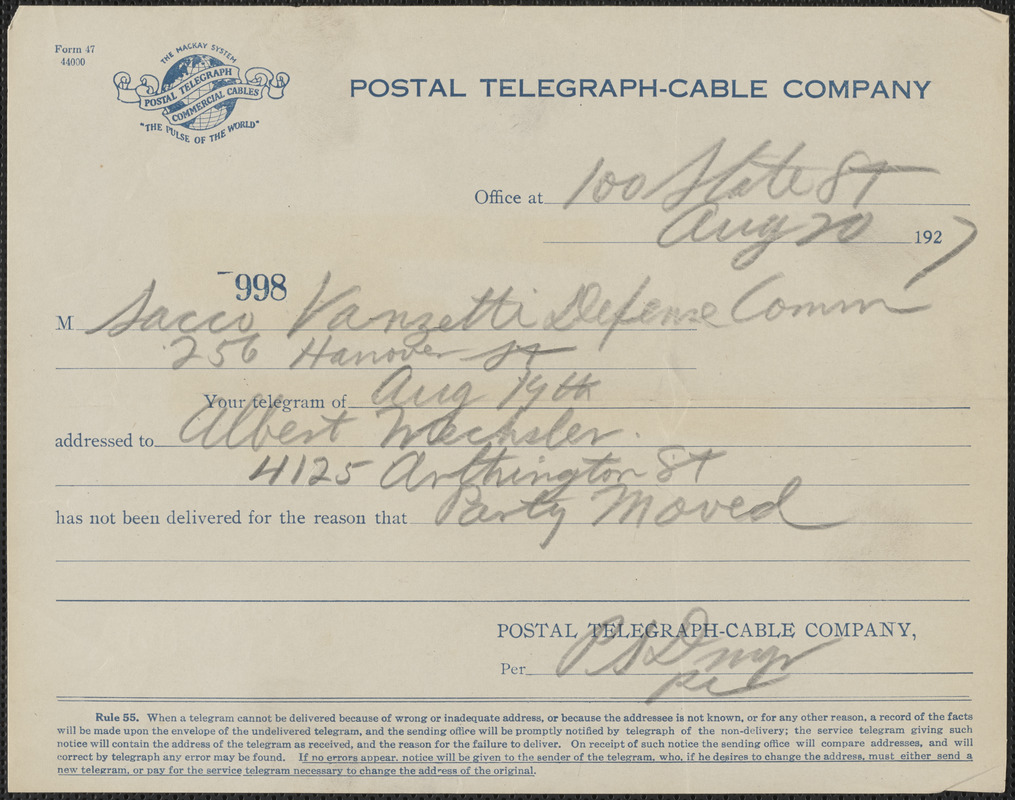 Form 47
44000
THE MACKAY SYSTEM
POSTAL TELEGRAPH
COMMERCIAL CABLES
"THE PULSE OF THE WORLD"
POSTAL TELEGRAPH-CABLE COMPANY
Office at 100 State St
Aug 20 1927
998
M Sacco Vanzetti Defense Comm
256 Hanover St
Your telegram of Aug 19th
addressed to Albert Wechsler.
4125 Arthington St
has not been delivered for the reason that Party Moved
POSTAL TELEGRAPH-CABLE COMPANY,
Per
Rule 55. When a telegram cannot be delivered because of wrong or inadequate address, or because the addressee is not known, or for any other reason, a record of the facts
will be made upon the envelope of the undelivered telegram, and the sending office will be promptly notified by telegraph of the non-delivery; the service telegram giving such
notice will contain the address of the telegram as received, and the reason for the failure to deliver. On receipt of such notice the sending office will compare addresses, and will
correct by telegraph any error may be found. If no errors appear, notice will be given to the sender of the telegram, who, if he desires to change the address, must either send a
new telegram, or pay for the service telegram necessary to change the address of the original.